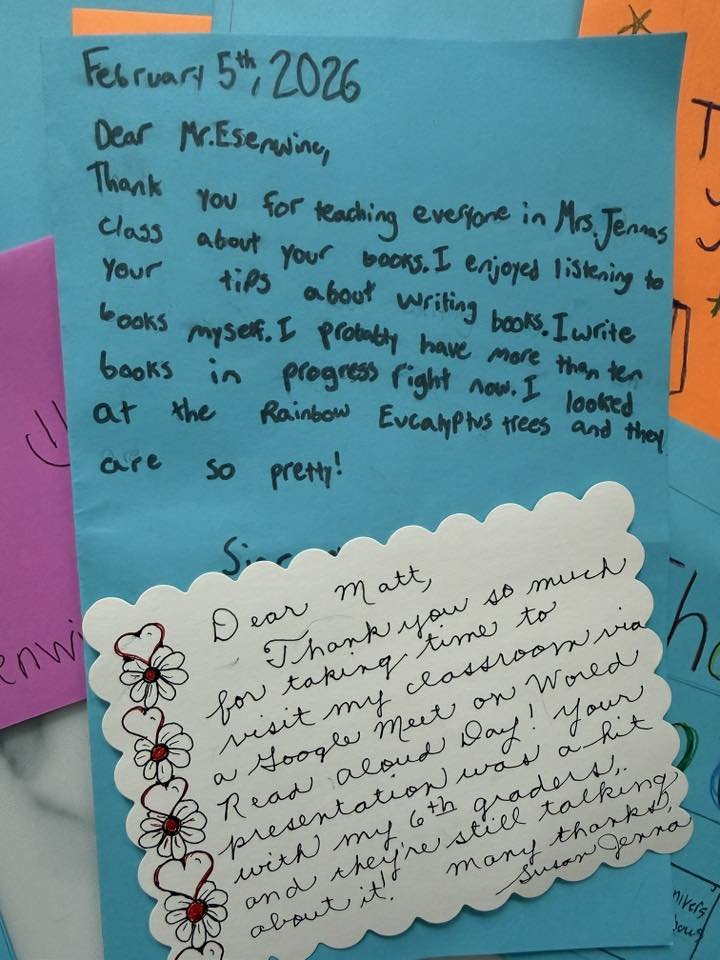 February 5th, 2026
Dear Mr. Esenwine,
Thank you for teaching everyone in Mrs. Jennas
class about your books. I enjoyed listening to
your tips about writing books. I write
books myself. I probably have more than ten
books in progress right now. I looked
at the Rainbow Eucalyptus trees and they
are so pretty!
Dear Matt,
Thank you so much
for taking time to
visit my classroom via
a Google Meet on World
Read Aloud Day! Your
presentation was a hit
with my 6th graders,
and they're still talking
about it! Many thanks,
Susan Jenna